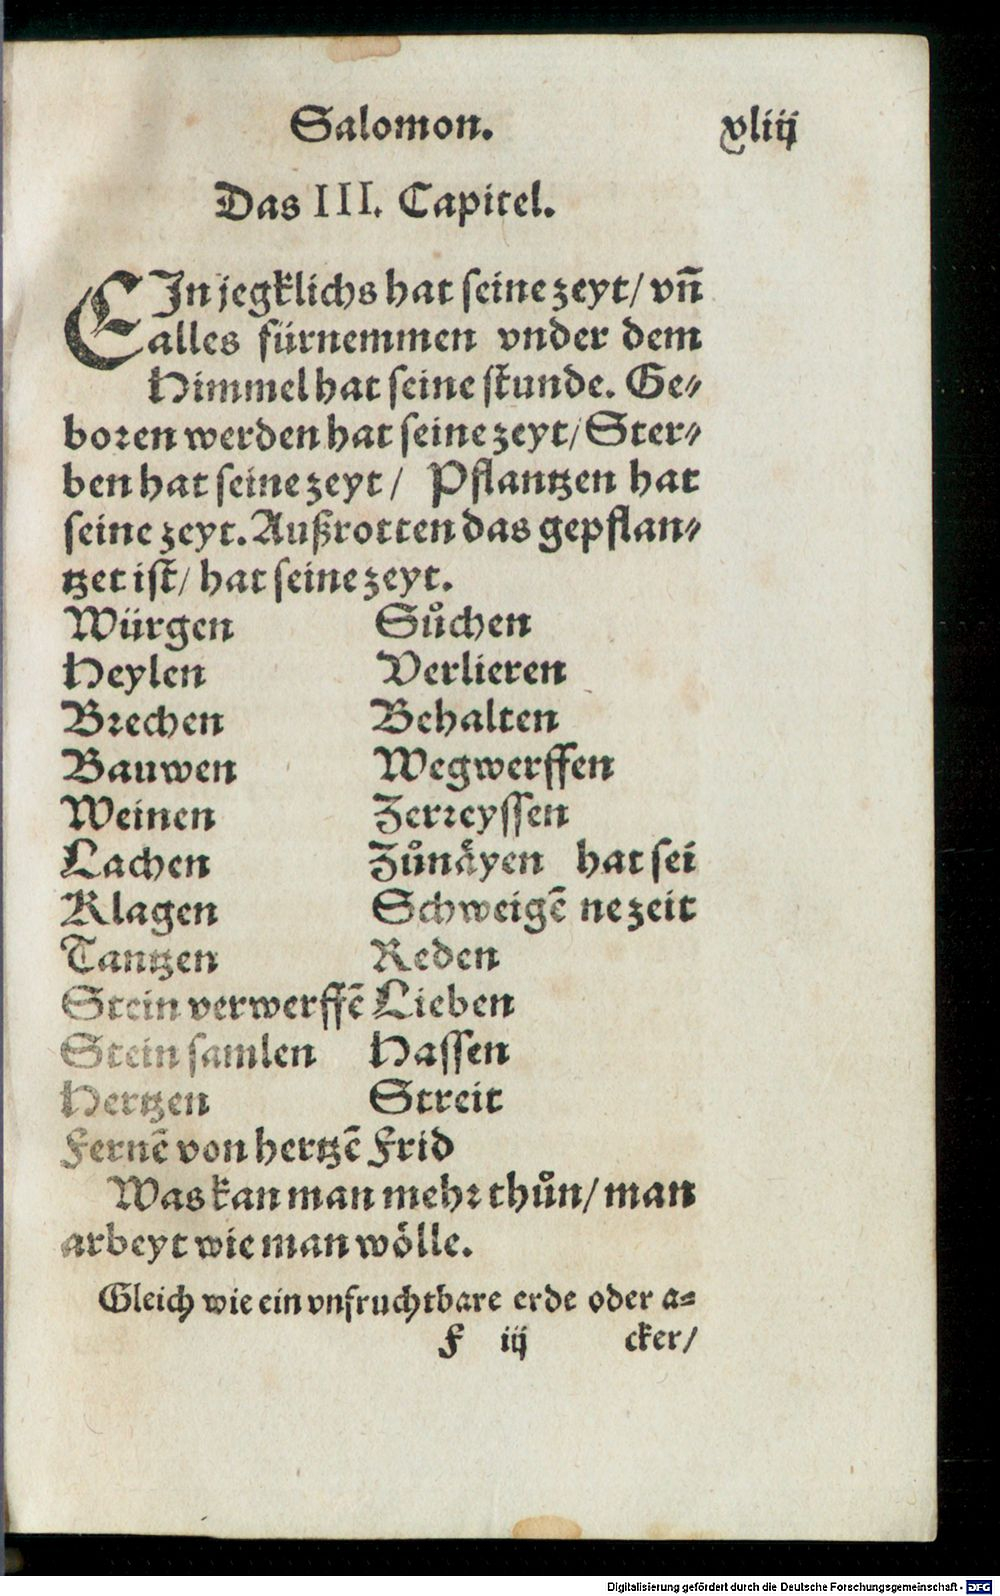 Salomon. xliij
Das III. Capitel.
EIn jegklichs hat seine zeyt/ vñ
alles fürnemmen vnder dem
Himmel hat seine stunde. Ge⸗
boꝛen werden hat seine zeyt/ Ster⸗
ben hat seine zeyt/ Pflantzen hat
seine zeyt. Außrotten das gepflan⸗
tzet ist/ hat seine zeyt.
Würgen Sůchen
Heylen Verlieren
Bꝛechen Behalten
Bauwen Wegwerffen
Weinen Zerꝛeyssen
Lachen Zůnäyen hat sei
Klagen Schweigẽ ne zeit
Tantzen Reden
Stein verwerffẽ Lieben
Stein samlen Hassen
Hertzen Streit
Fernẽ von hertzẽ Frid
Was kan man mehꝛ thůn/ man
arbeyt wie man wölle.
Gleich wie ein vnfruchtbare erde oder a⸗
F iij cker/
Digitalisierung gefördert durch die Deutsche Forschungsgemeinschaft - DFG